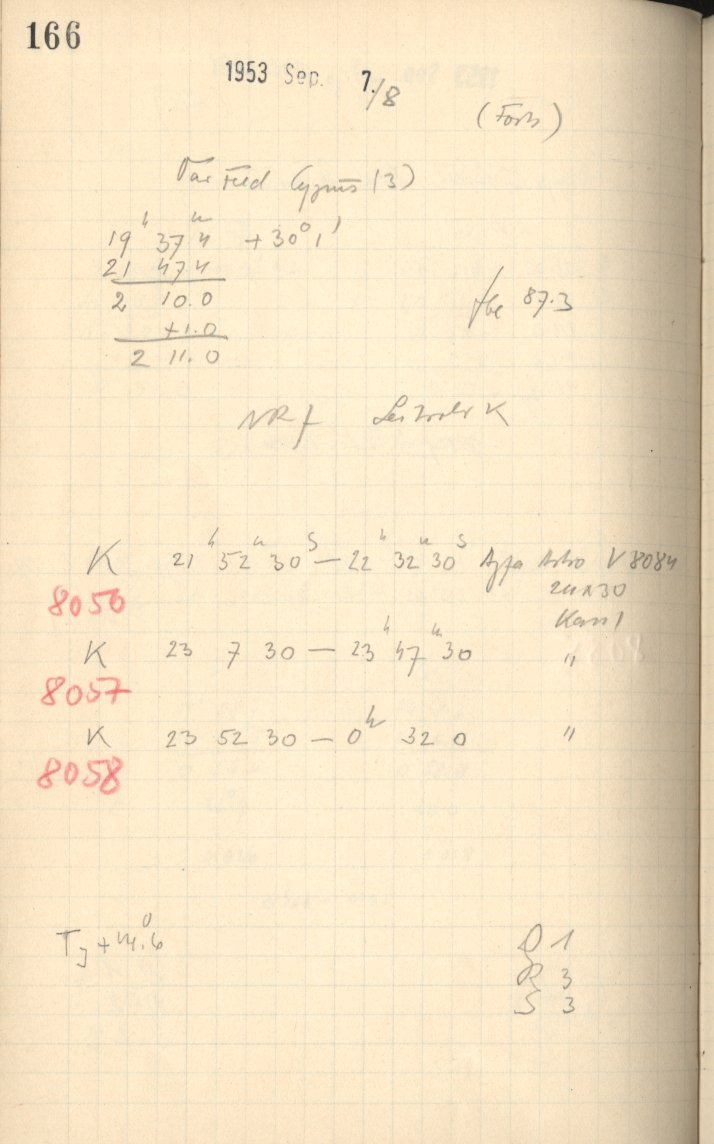 166
1953 Sep. 7./8
(Forts)
Var Feld Cygnus (3)
19ʰ 37ᵐ4 +30° 1'
21 47 4
2 10.0
+1.0
2 11.0
87.3
NR f Leitrohr K
K 21ʰ 52ᵐ 30ˢ — 22ʰ 32ᵐ 30ˢ Agfa Astro V 8084
8056
24x30
Kass 1
K 23 7 30 — 23ʰ 47ᵐ 30 "
8057
K 23 52 30 — 0ʰ 32 0 "
8058
+14.°6
Q 1
R 3
S 3